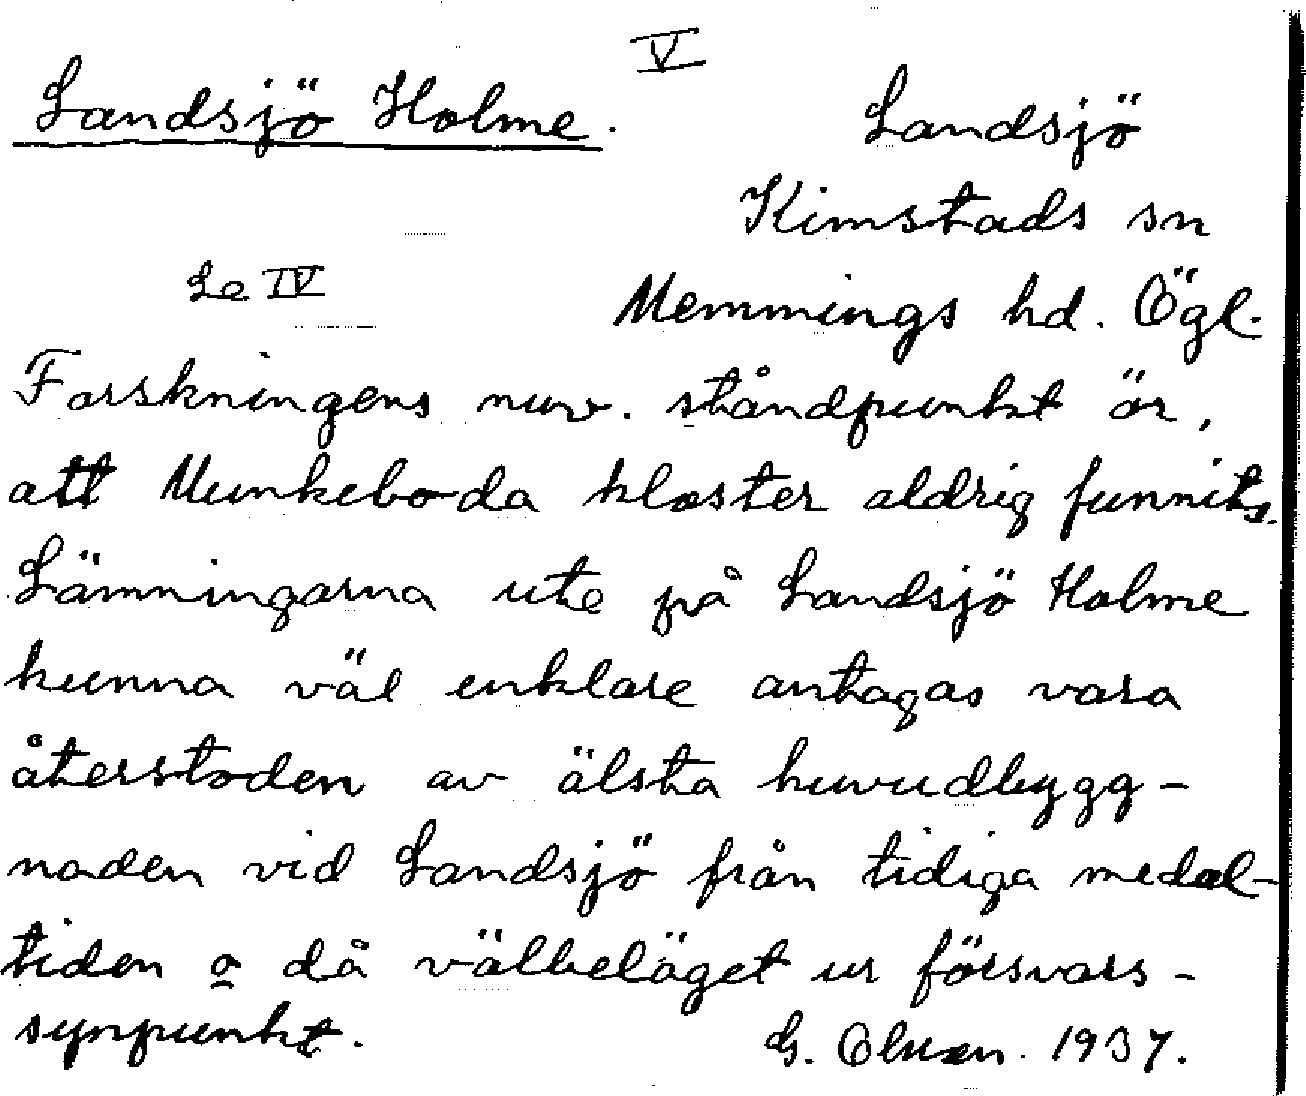 V
Landsjö Holme.
Landsjö
Kimstads sn
Se IV
Memmings hd. Ögl.
Forskningens nuv. ståndpunkt är,
att Munkeboda kloster aldrig funnits.
Lämningarna ute på Landsjö Holme
kunna väl enklare antagas vara
återstoden av älsta huvudbygg-
naden vid Landsjö från tidiga medel-
tiden o då välbeläget ur försvars-
synpunkt.
G. Olsson. 1937.